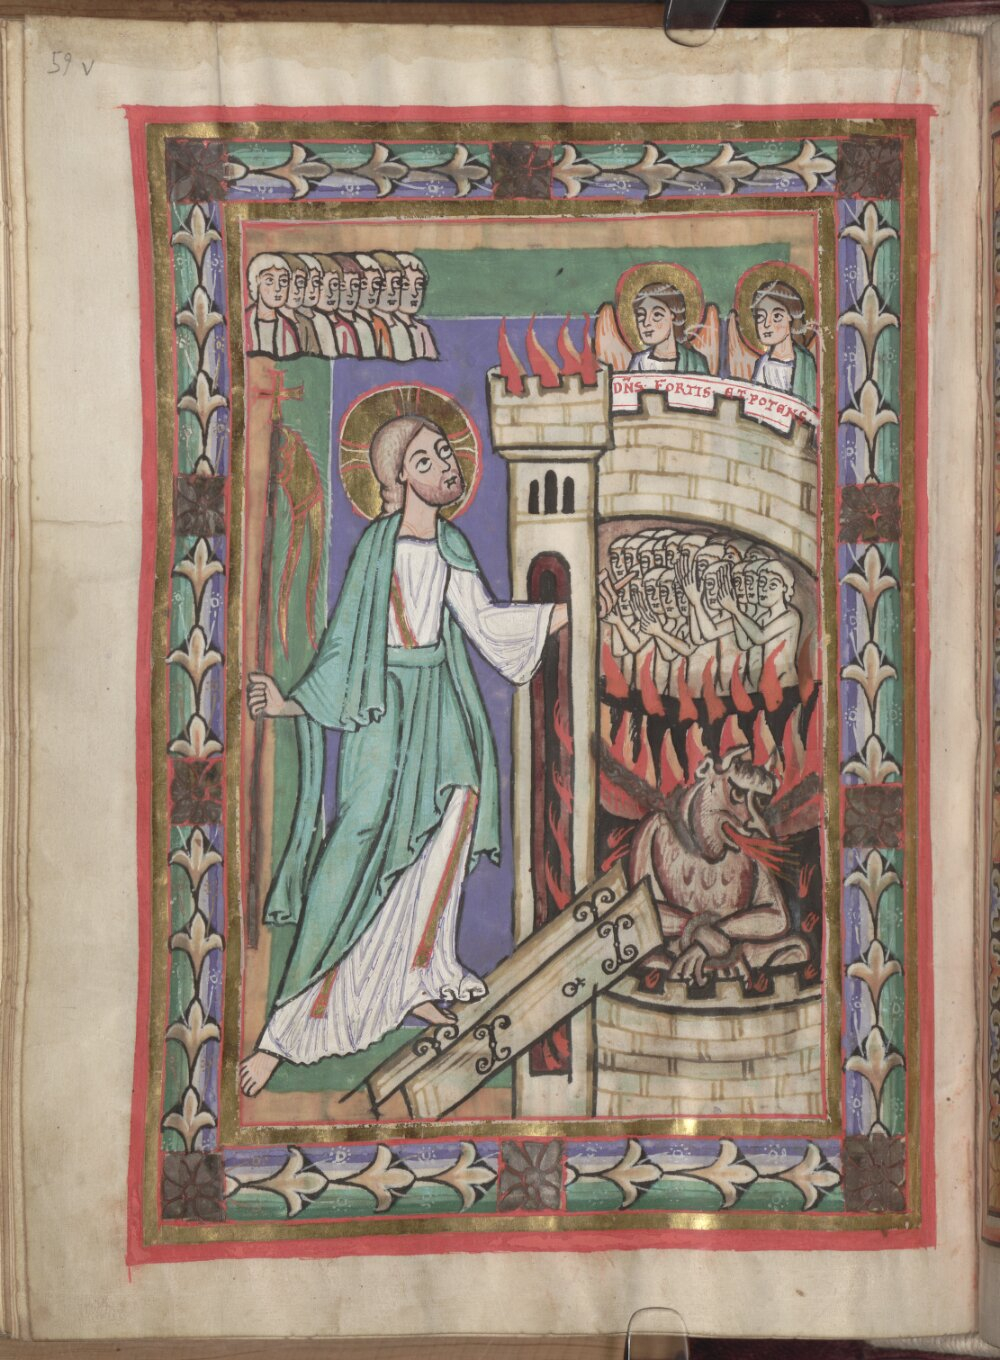 59 v
DN̄S FORTIS ET POTENS